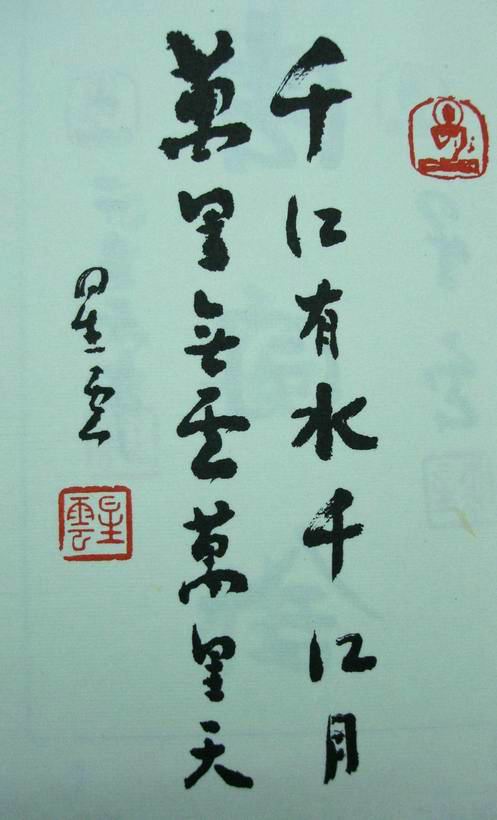 千江有水千江月
萬里無雲萬里天
星雲
星雲